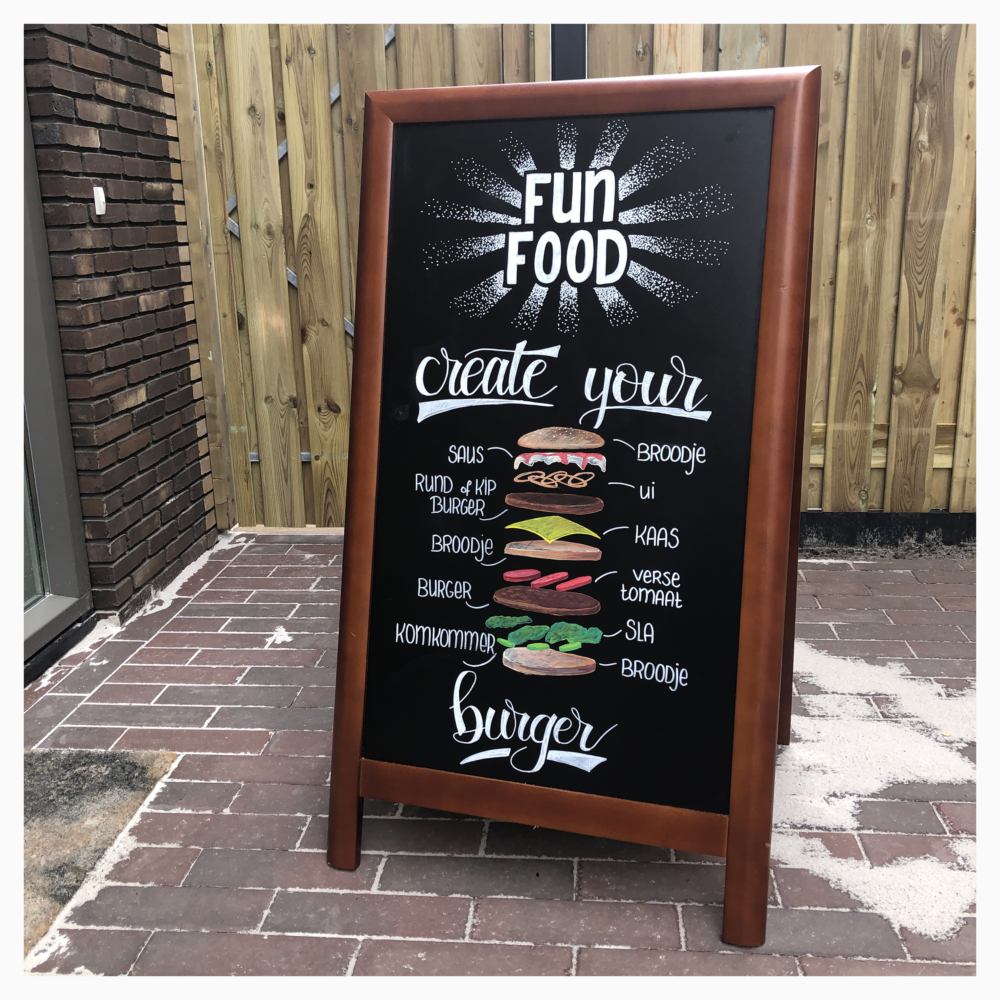 FUN
FOOD
create your
SAUS
BROODJE
RUND of KIP
BURGER
UI
KAAS
BROODJE
VERSE
TOMAAT
BURGER
SLA
KOMKOMMER
BROODJE
burger